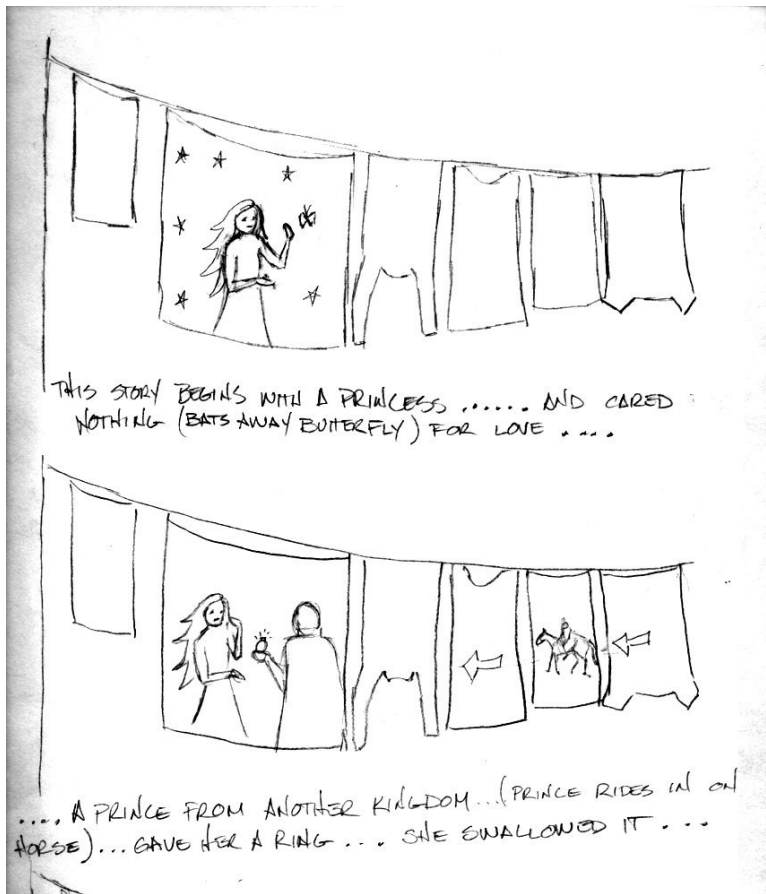 THIS STORY BEGINS WITH A PRINCESS ...... AND CARED
NOTHING (BATS AWAY BUTTERFLY) FOR LOVE ....
.... A PRINCE FROM ANOTHER KINGDOM ... (PRINCE RIDES IN ON
HORSE) ... GAVE HER A RING ... SHE SWALLOWED IT ...